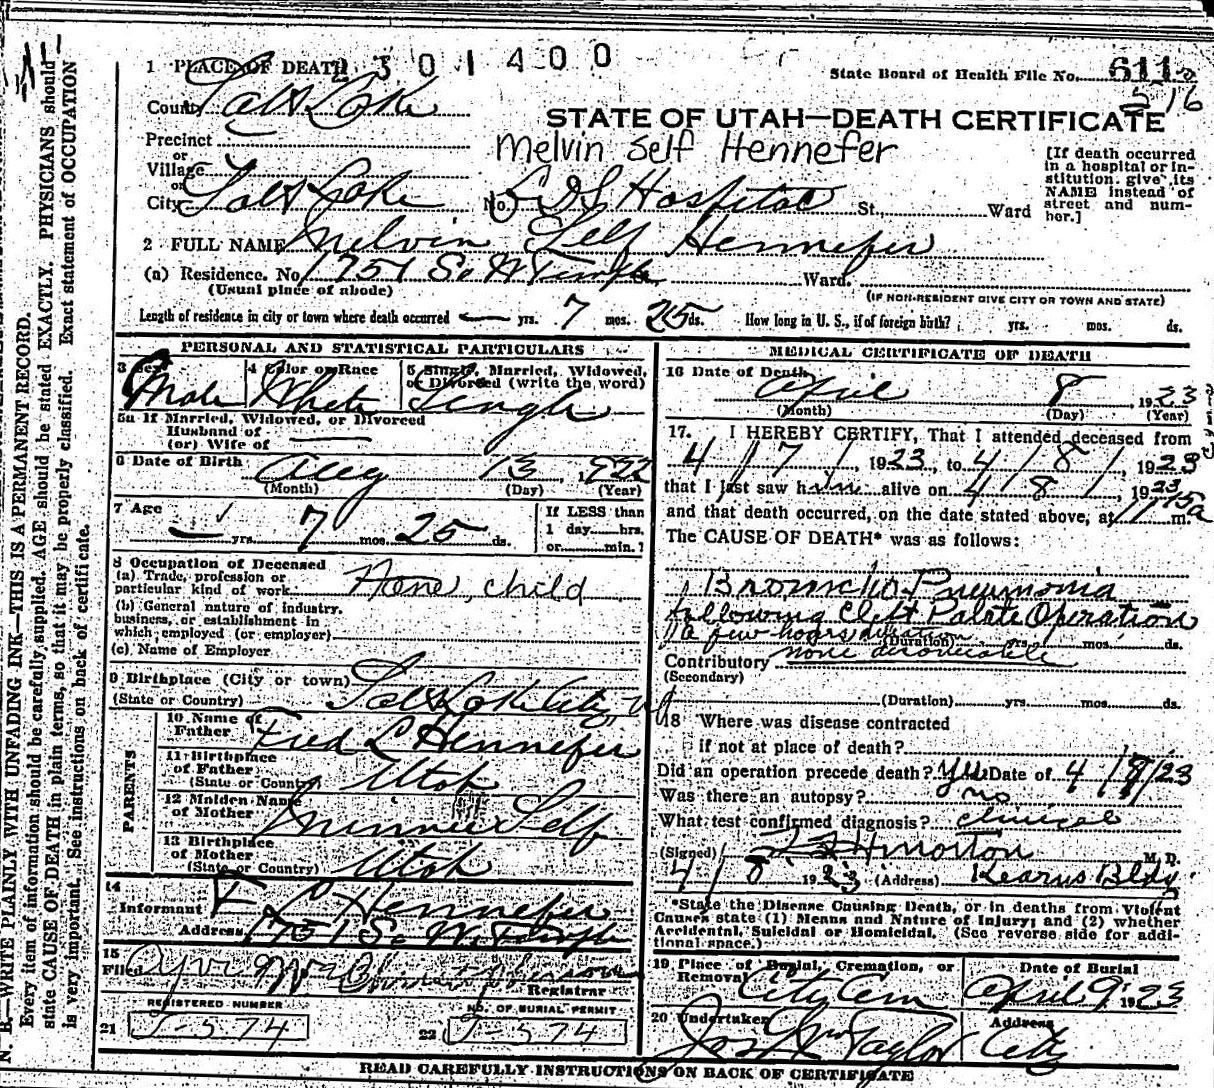 2301400
1 PLACE OF DEATH
State Board of Health File No. 611
516
County Salt Lake
STATE OF UTAH—DEATH CERTIFICATE
Precinct
or
Melvin Self Hennefer
Village
or
City Salt Lake No. L D S Hospital St., Ward
[If death occurred
in a hospital or in-
stitution, give its
NAME instead of
street and num-
ber.]
2 FULL NAME Melvin Self Hennefer
(a) Residence. No. 1751 So W Temple Ward.
(Usual place of abode)
(IF NON-RESIDENT GIVE CITY OR TOWN AND STATE)
Length of residence in city or town where death occurred — yrs. 7 mos. 25 ds. How long in U. S., if of foreign birth? yrs. mos. ds.
PERSONAL AND STATISTICAL PARTICULARS
3 Sex
Male
4 Color or Race
White
5 Single, Married, Widowed,
or Divorced (write the word)
Single
5a If Married, Widowed, or Divorced
Husband of
(or) Wife of —
6 Date of Birth Aug 13, 1922
(Month) (Day) (Year)
7 Age — yrs. 7 mos. 25 ds.
If LESS than
1 day hrs.
or min.?
8 Occupation of Deceased
(a) Trade, profession or
particular kind of work None, child
(b) General nature of industry,
business, or establishment in
which employed (or employer)
(c) Name of Employer
9 Birthplace (City or town)
(State or Country) Salt Lake City, U
PARENTS
10 Name of
Father Fred L Hennefer
11 Birthplace
of Father
(State or Country) Utah
12 Maiden Name
of Mother Minnie Self
13 Birthplace
of Mother
(State or Country) Utah
14
Informant F L Hennefer
Address 1751 So W. Temple
15
Filed Apr 9
Registrar
REGISTERED NUMBER
21 J-574
NO. OF BURIAL PERMIT
22 J-574
MEDICAL CERTIFICATE OF DEATH
16 Date of Death
April 8, 1923
(Month) (Day) (Year)
17. I HEREBY CERTIFY, That I attended deceased from
4/7/, 1923, to 4/8/, 1923
that I last saw him alive on 4/8/, 1923
and that death occurred, on the date stated above, at 11 15a m.
The CAUSE OF DEATH* was as follows:
Broncho-Pneumonia
following Cleft Palate Operation
a few hours duration
(Duration) yrs. mos. ds.
Contributory none discoverable
(Secondary)
(Duration) yrs. mos. ds.
18 Where was disease contracted
if not at place of death?
Did an operation precede death? Yes Date of 4/7/23
Was there an autopsy? no
What test confirmed diagnosis? clinical
(Signed) Morton M. D.
4/8 1923 (Address) Kearns Bldg.
*State the Disease Causing Death, or in deaths from Violent
Causes state (1) Means and Nature of Injury; and (2) whether
Accidental, Suicidal or Homicidal. (See reverse side for addi-
tional space.)
19 Place of Burial, Cremation, or
Removal City Cem
Date of Burial
April 9 1923
20 Undertaker
Jos Wm Taylor
Address
City
READ CAREFULLY INSTRUCTIONS ON BACK OF CERTIFICATE
N. B.—WRITE PLAINLY WITH UNFADING INK—THIS IS A PERMANENT RECORD.
Every item of information should be carefully supplied. AGE should be stated EXACTLY. PHYSICIANS should
state CAUSE OF DEATH in plain terms, so that it may be properly classified. Exact statement of OCCUPATION
is very important. See instructions on back of certificate.